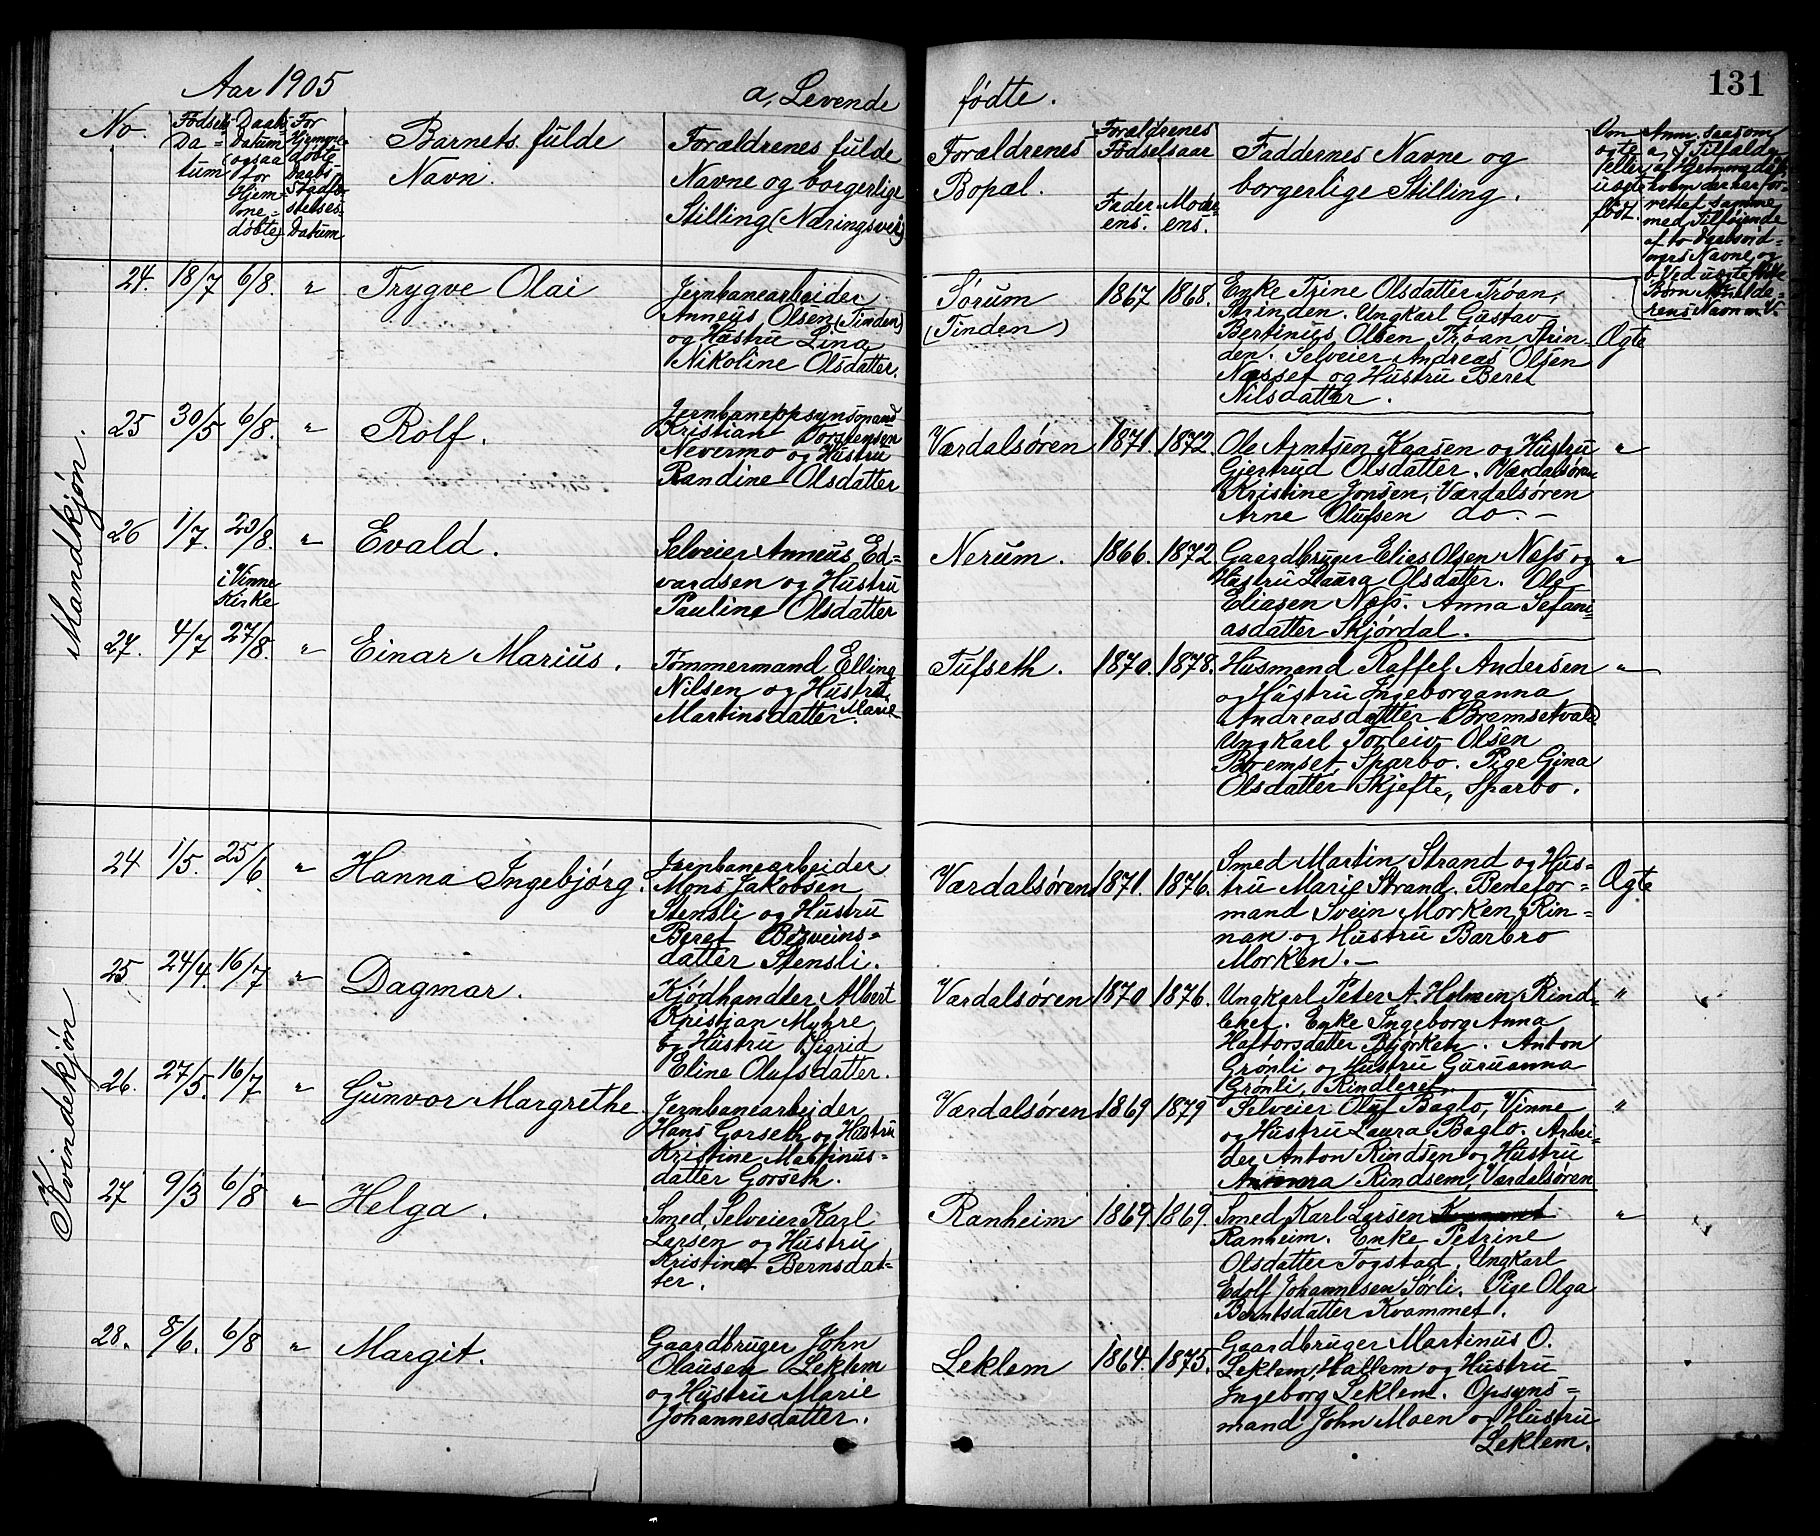 Aar 1905
a, Levende
fødte.
131
No.
Fødsels-
Da-
tum
Daabs-
Datum
(ogsaa
for
Hjem-
me-
døbte)
For
Hjemme-
døbte
Daabs-
Stadfæ-
stelses-
Datum
Barnets fulde
Navn.
Forældrenes fulde
Navne og borgerlige
Stilling (Næringsvei)
Forældrenes
Bopæl.
Forældrenes
Fødselsaar
Fader-
ens.
Moder-
ens.
Faddernes Navne og
borgerlige Stilling.
Om
ægte
eller
uægte
født.
Anm. saasom
a, I Tilfælde
af Hjemmedåb,
hvem der har for-
rettet samme
med Tilføiende
af to Daabsvid-
ners Navne, og
b. Ved uægte fødte
Børn
rens Navn
Mandkjøn.
24. 18/7 6/8. " Trygve Olai
Jernbanearbeider
Anneus Olsen (Tinden)
og Hustru Lina
Nikoline Olsdatter.
Sørum
(Tinden)
1867 1868.
Enke Trine Olsdatter Trøan,
Strinden. Ungkarl Gustav
Bertinius Olsen, Trøan Strin-
den. Selveier Andreas Olsen
Næsset og Hustru Beret
Nilsdatter.
Ægte
25 30/5 6/8. " Rolf.
Jernbaneopsynsmand
Kristian Torstensen
Nevermo og Hustru
Randine Olsdatter
Værdalsøren 1871. 1872.
Ole Arntsen Kaasen og Hustru
Gjertrud Olsdatter. Værdalsøren
Kristine Jonsen, Værdalsøren
Arne Olufsen do. -
"
26 1/7. 20/8. " Evald.
i Vinne
Kirke
Selveier Anneus Ed-
vardsen og Hustru
Pauline Olsdatter
Nerum. 1866. 1872
Gaardbruger Elias Olsen Næss og
Hustru Laura Olsdatter. Ole
Eliasen Næss. Anna Sefani-
asdatter Skjørdal.
"
27. 4/7 27/8. " Einar Marius.
Tømmermand Elling
Nilsen og Hustru
Martinsdatter. Marie
Tufseth. 1870. 1878.
Husmand Raffel Andersen
og Hustru Ingeborganna
Andreasdatter Bremsetvald.
Ungkarl Torleiv Olsen
Bremset Sparbo. Pige Gina
Olsdatter Skjefte, Sparbo.
"
Kvindekjøn
24 1/5. 25/6. " Hanna Ingebjørg.
Jernbanearbeider
Mons Jakobsen
Stensli og Hustru
Beret Besveins-
datter Stensli.
Værdalsøren 1871. 1876.
Smed Martin Strand og Hus-
tru Marie Strand. Banefor-
mand Svein Morken, Rin-
nan og Hustru Barbro
Morken. -
Ægte
25. 24/4. 16/7 " Dagmar.
Kjødhandler Albert
Kristian Myhre
og Hustru Sigrid
Eline Olufsdatter.
Værdalsøren 1870 1876.
Ungkarl Peter A. Holmen, Rind-
leret. Enke Ingeborg Anna
Haftorsdatter Bjørken. Anton
Grønli og Hustru Guruanna
Grønli, Rindleret.
"
26. 27/5. 16/7 " Gunvor Margrethe.
Jernbanearbeider
Hans Gorseth og Hustru
Kristine Martinus-
datter Gorseth.
Værdalsøren 1869 1879
Selveier Oluf Baglo, Vinne
og Hustru Laura Baglo. Arbei-
der Anton Rindsen og Hustru
Anna Rindsem, Værdalsøren
"
27 9/3 6/8 " Helga.
Smed, Selveier Karl
Larsen og Hustru
Kristine Bernsdat-
ter.
Ranheim 1869. 1869.
Smed Karl Larsen
Ranheim. Enke Petrine
Olsdatter Togstad. Ungkarl
Edolf Johannesen Sørli. Pige Olga
Berntsdatter Kvammet.
"
28. 8/6. 6/8 " Margit.
Gaardbruger John
Olausen Leklem
og Hustru Marie
Johannesdatter.
Leklem 1864. 1875.
Gaardbruger Martinus O.
Leklem, Hallem og Hustru
Ingeborg Leklem. Opsyns-
mand John Moen og Hustru
Leklem.